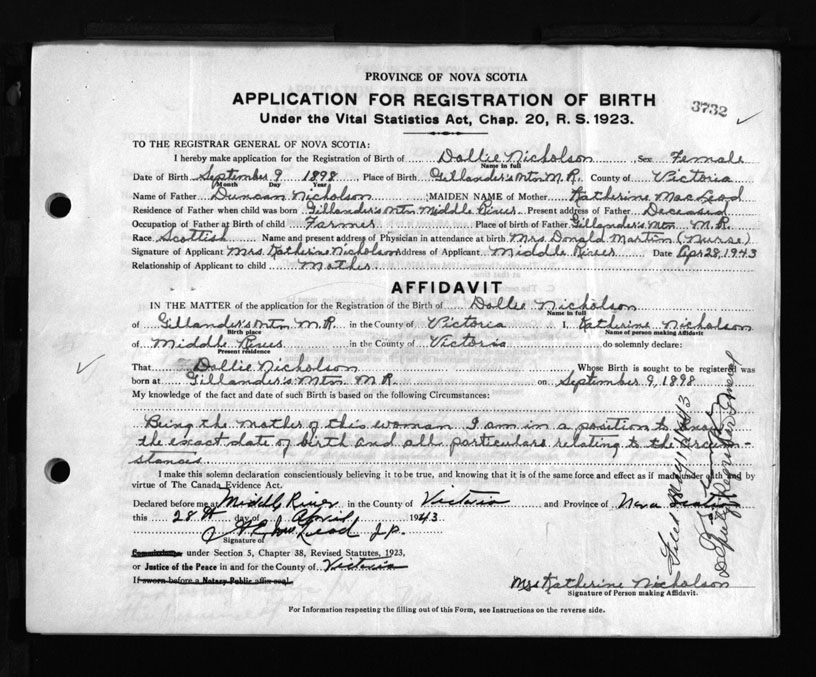 PROVINCE OF NOVA SCOTIA
APPLICATION FOR REGISTRATION OF BIRTH
3732
Under the Vital Statistics Act, Chap. 20, R. S. 1923.
TO THE REGISTRAR GENERAL OF NOVA SCOTIA:
I hereby make application for the Registration of Birth of Dollie Nicholson Sex Female
Name in full
Date of Birth September 9 1898 Place of Birth Gillander's Mtn M.R. County of Victoria
Month Day Year
Name of Father Duncan Nicholson MAIDEN NAME of Mother Katherine MacLeod
Residence of Father when child was born Gillander's Mtn Middle River Present address of Father Deceased
Occupation of Father at Birth of child Farmer Place of birth of Father Gillander's Mtn M.R.
Race Scottish Name and present address of Physician in attendance at birth Mrs Donald Martin (Nurse)
Signature of Applicant Mrs Katherine Nicholson Address of Applicant Middle River Date Apr 28, 1943
Relationship of Applicant to child Mother
AFFIDAVIT
IN THE MATTER of the application for the Registration of the Birth of Dollie Nicholson
Name in full
of Gillander's Mtn M.R. in the County of Victoria I, Katherine Nicholson
Birth place Name of person making Affidavit
of Middle River in the County of Victoria do solemnly declare:
Present residence
That Dollie Nicholson Whose Birth is sought to be registered was
born at Gillander's Mtn. M.R. on September 9, 1898
My knowledge of the fact and date of such Birth is based on the following Circumstances:
Being the mother of this woman I am in a position to know
the exact date of birth and all particulars relating to the circum-
stances
I make this solemn declaration conscientiously believing it to be true, and knowing that it is of the same force and effect as if made under oath and by
virtue of The Canada Evidence Act.
Declared before me at Middle River in the County of Victoria and Province of Nova Scotia
this 28th day of April 1943
MacLeod J.P.
Signature of
Commissioner under Section 5, Chapter 38, Revised Statutes, 1923,
or Justice of the Peace in and for the County of Victoria
If sworn before a Notary Public affix seal.
Mrs Katherine Nicholson
Signature of Person making Affidavit.
For Information respecting the filling out of this Form, see Instructions on the reverse side.
Filed May 11 1943
Deputy Registrar General